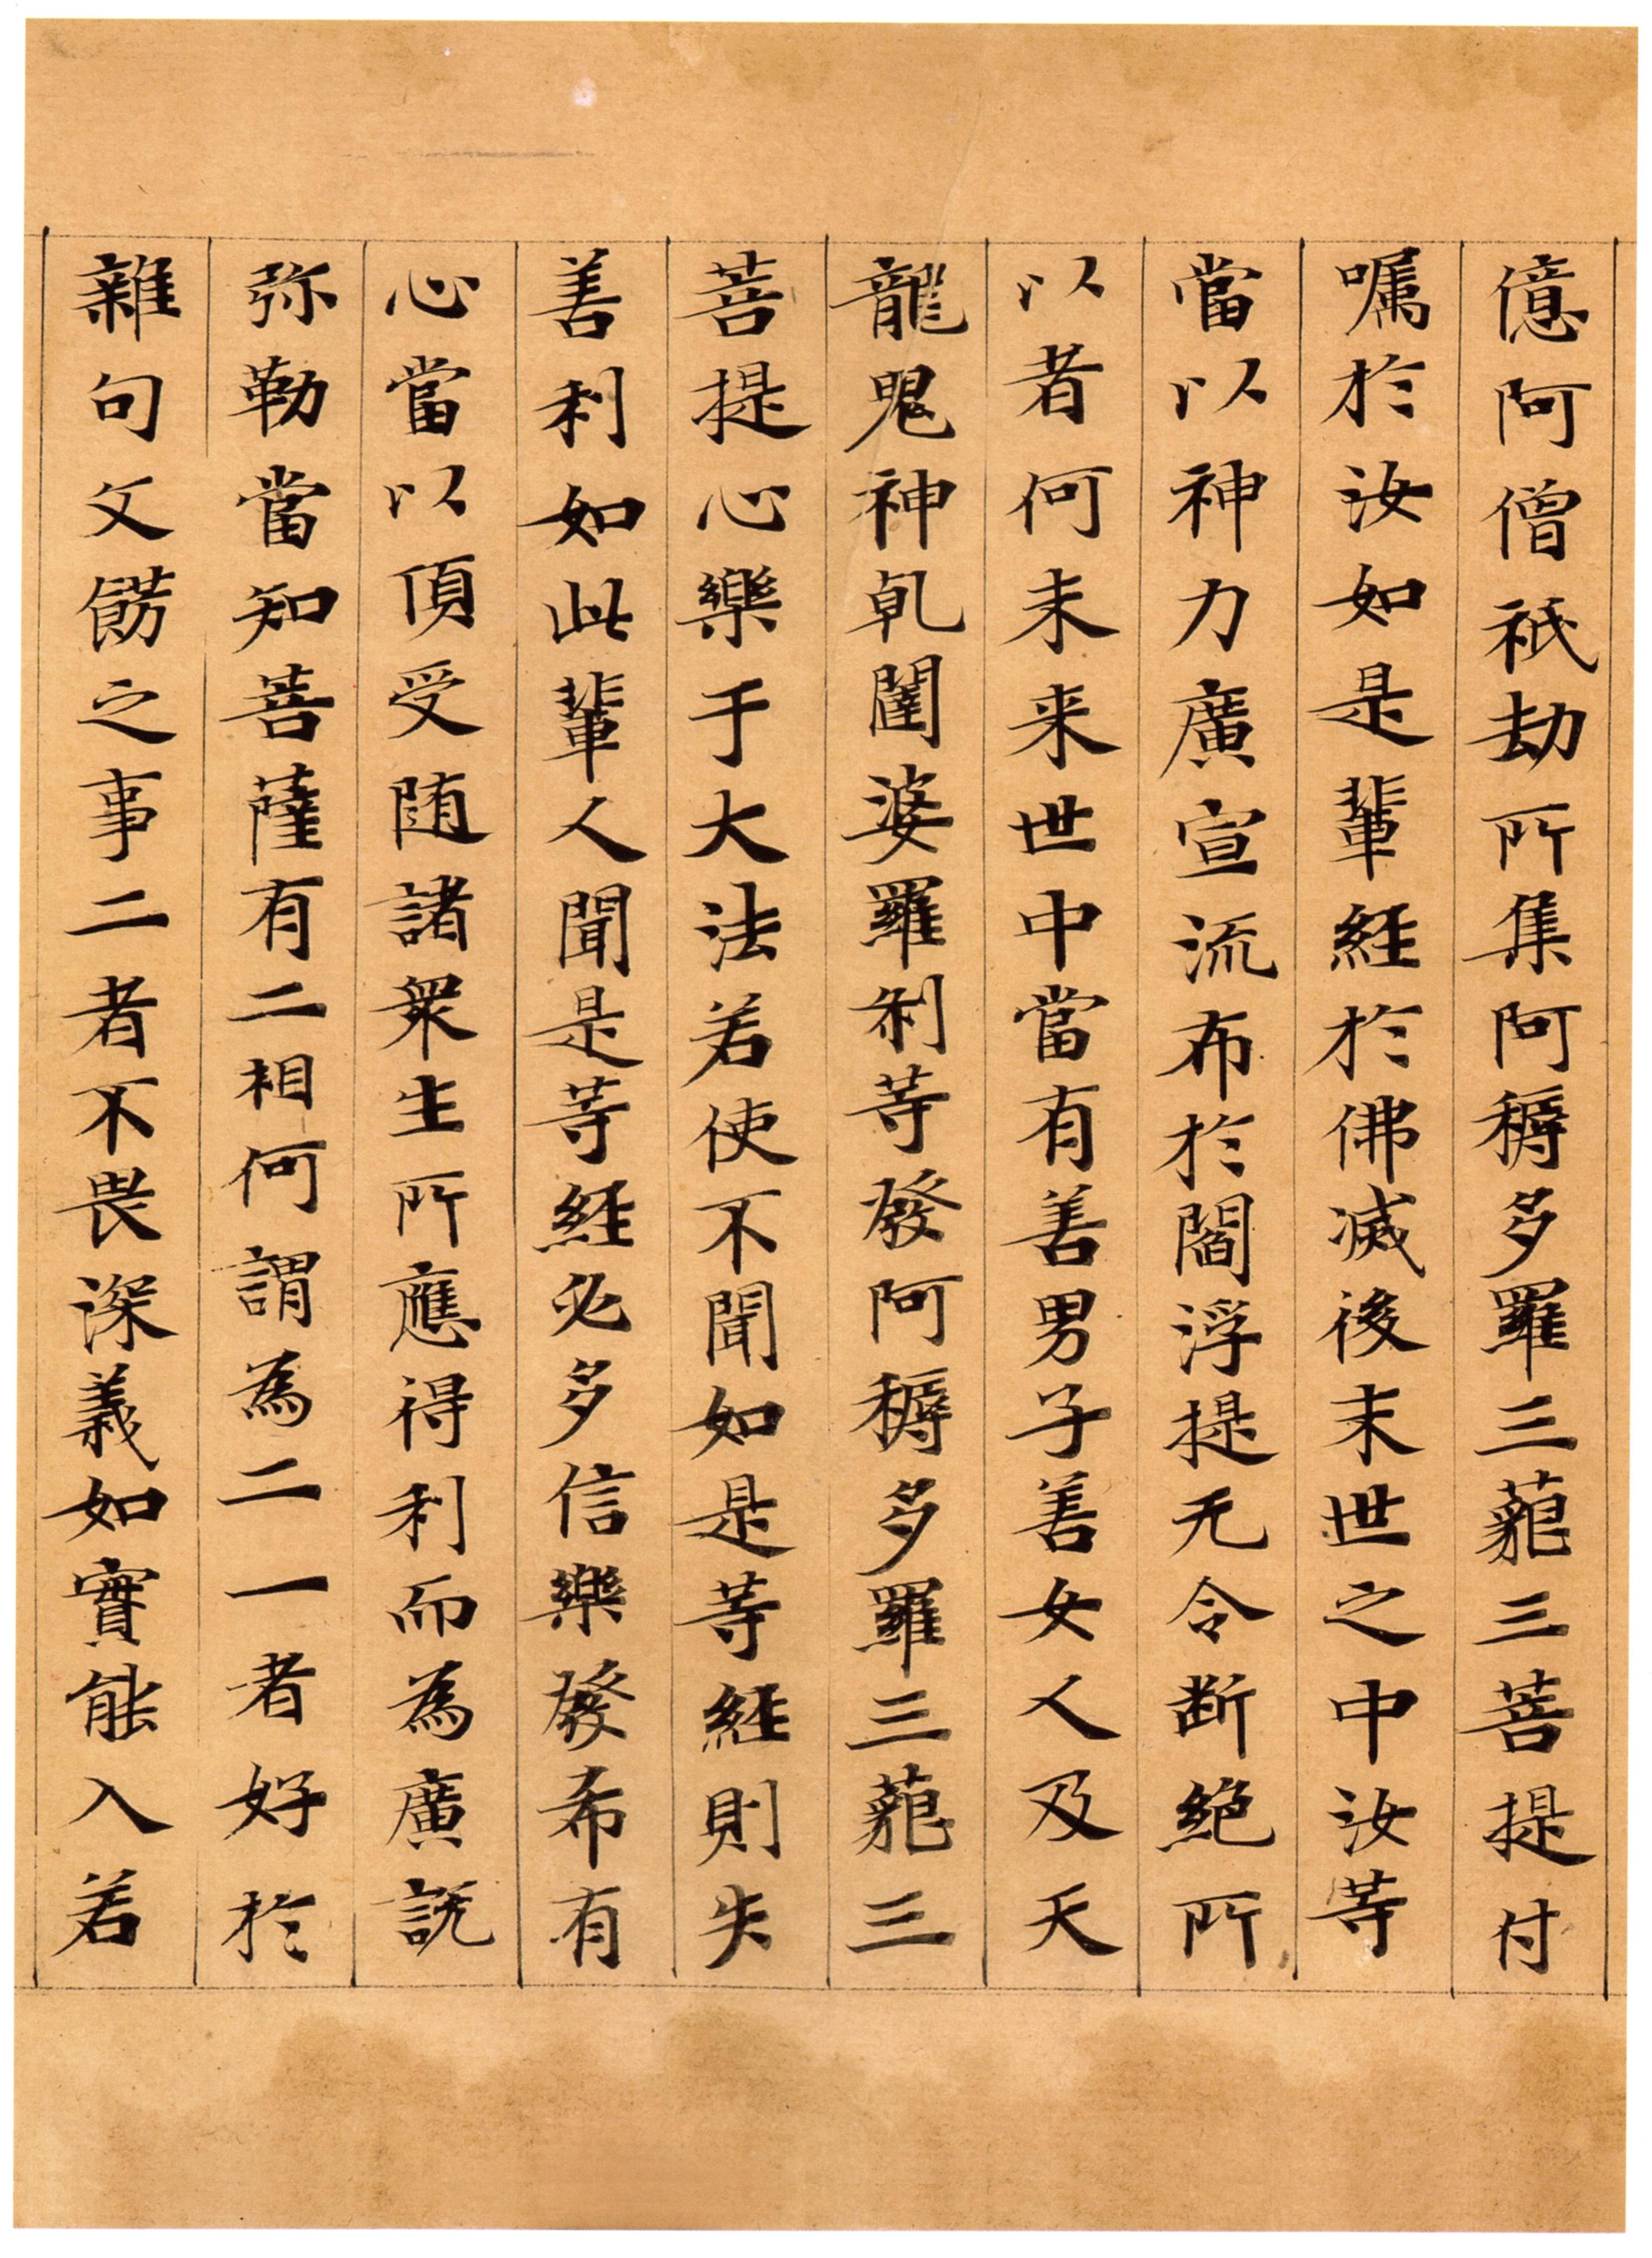 億阿僧祇劫所集阿耨多羅三藐三菩提付
嘱於汝如是輩經於佛滅後末世之中汝等
當以神力廣宣流布於閻浮提无令断絶所
以者何未来世中當有善男子善女人及天
龍鬼神乹闥婆羅刹等發阿耨多羅三藐三
菩提心樂于大法若使不聞如是等經則失
善利如此輩人聞是等經必多信樂發希有
心當以頂受随諸衆生所應得利而為廣説
弥勒當知菩薩有二相何謂為二一者好於
雜句文餝之事二者不畏深義如實能入若